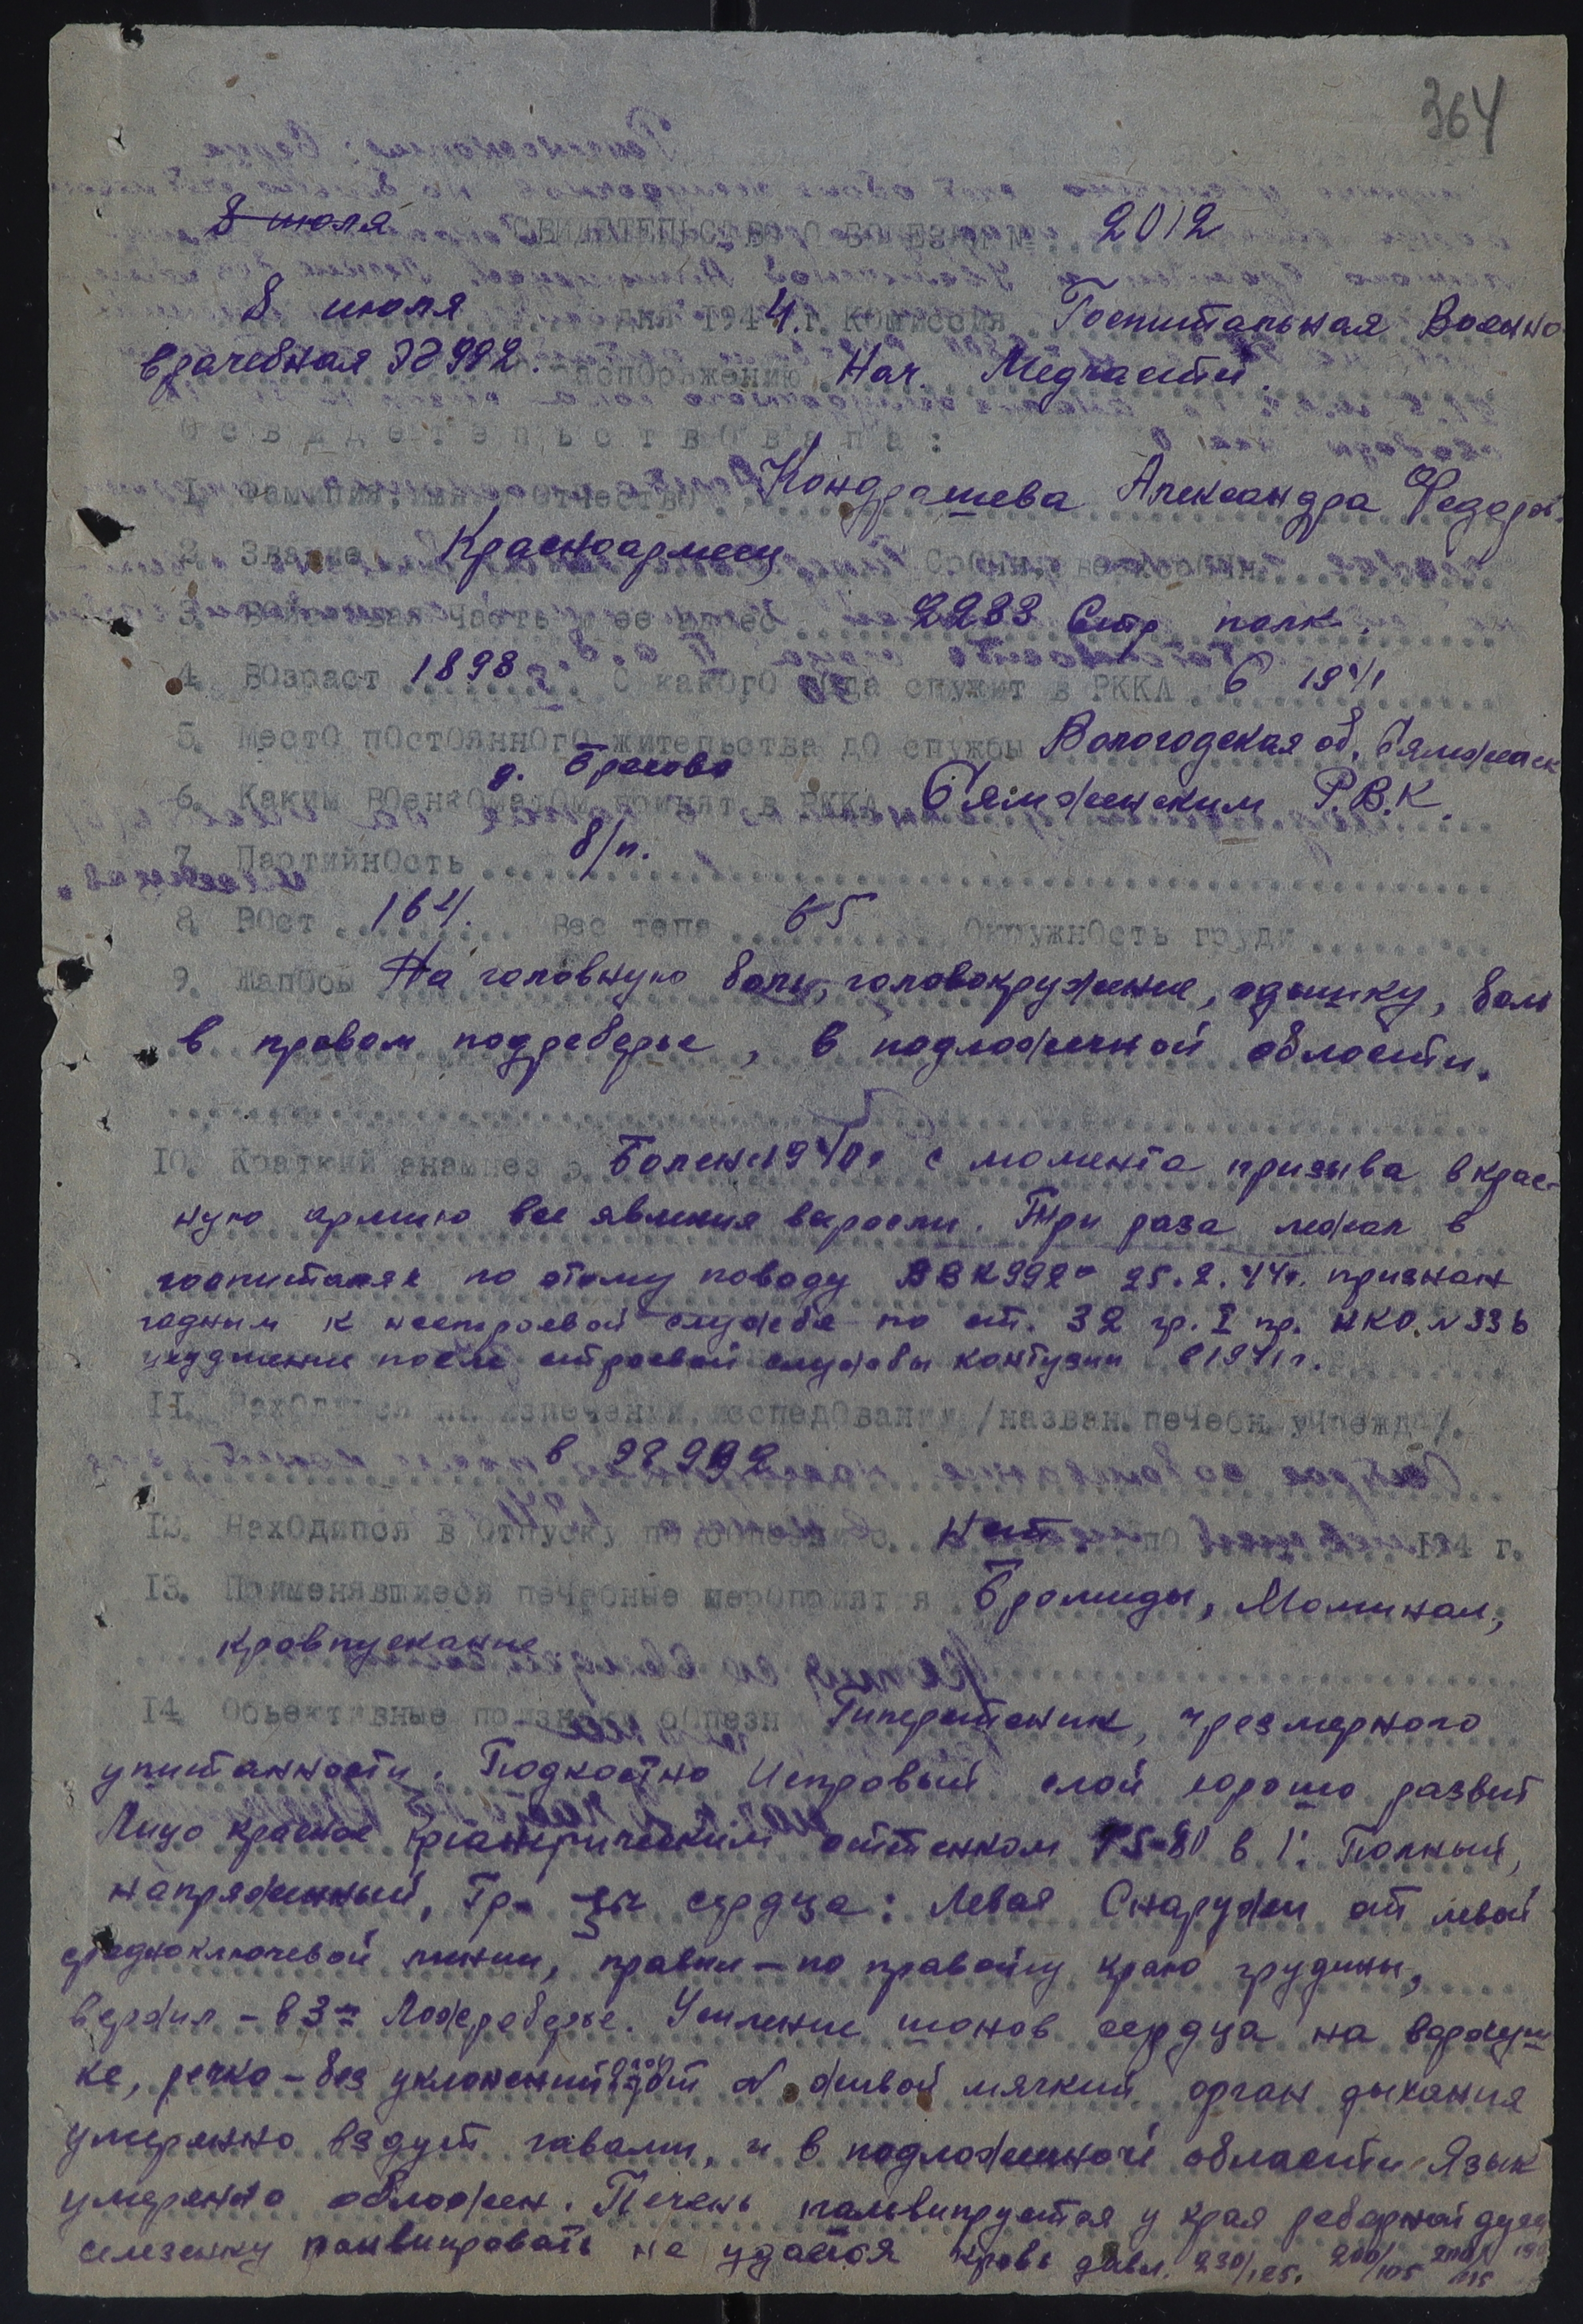 364
8 июля СВИДЕТЕЛЬСТВО О БОЛЕЗНИ № 2012
8 июля дня 1944 г. Комиссия Госпитальная Военно
врачебная ЭГ 992. распоряжению Нач. Медчасти.
Освидетельствовала:
1. Фамилия, имя, отчество Кондрашева Александра Федоров.
2. Звание Красноармеец
3. Войсковая часть и ее адрес 2283 Стр. полк.
4. Возраст 1898 г. С какого года служит в РККА С 1941
5. Место постоянного жительства до службы Вологодская об. Сямженск
д. Брасово
6. Каким военкоматом принят в РККА Сямженским Р.В.К.
7. Партийность б/п.
8. Рост 164. Вес тела 65 Окружность груди
9. Жалобы На головную боль, головокружение, одышку, боль
в правом подреберье, в подложечной области.
10. Краткий анамнез Болен 1940г с момента призыва в Крас-
ную армию все явления выросли. Три раза лежал в
госпиталях по этому поводу ВВК 992 25.2.44г. признан
годным к нестроевой службе по ст. 32 гр. I пр. НКО. N 336
ухудшение после строевой службы контузии в 1941 г.
11. Находился на излечении, исследовании /назван. лечебн. учрежд./.
в ЭГ 992
12. Находился в отпуску по болезни с нет по 194 г.
13. Применявшиеся лечебные мероприятия Бромиды, Люминал,
кровпускание
14. Объективные признаки болезни Гиперстеник, чрезмерного
упитанности. Подкостно жировый слой хорошо развит
Лицо красное оттенком 75-80 в 1'. Полный,
напряженный, Гр-цы сердца: левая Снаружи от левой
средноключевой линии, правил - по правому краю грудины,
верхил - в 3м Межреберье. Усиление тонов сердца на верхуш
ке, легко - без уклонений живой мягкий орган дыхания
умеренно вздут газами, и в подложечной области. Язык
умеренно обложен. Печень пальпируется у края реберной дуги
селезенку пальпировать не удается кровь давл. 230/125. 200/105 200/115